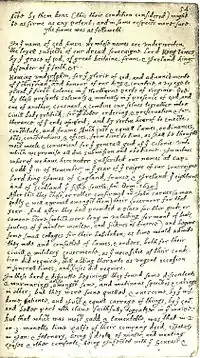 by them done (this their condition considered) might
be as firme as any patent; and in some respects more sure.
The forme was as followeth.
In ye name of god Amen. We whose names are underwriten,
the loyall subjects of our dread soveraigne Lord King James
by ye grace of god, of great Britaine, franc, & Ireland king,
defender of ye faith, &c
Haveing undertaken, for ye glorie of god, and advancemente
of ye christian faith and honour of our king & countrie, a voyage to
plant ye first colonie in ye Northerne parts of Virginia. doe
by these presents solemnly & mutualy in ye presence of god, and
one of another, covenant, & combine our selves togeather into a
civill body politick; for our better ordering, & preservation & fur-
therance of ye ends aforesaid; and by vertue hearof to enacte,
constitute, and frame shuch just & equall lawes, ordinances,
Acts, constitutions, & offices, from time to time, as shall be thought
most meete & convenient for ye generall good of ye Colonie: unto
which we promise all due submission and obedience. In witnes
wherof we have hereunder subscribed our names at Cap-
Codd ye .11. of November, in ye year of ye raigne of our soveraigne
Lord king James of England, france, & Ireland ye eighteenth
and of Scotland ye fiftie fourth. Ano: Dom. 1620.
After this they chose, or rather confirmed mr John Carver (a man
godly & well approved amongst them) their Governour for that
year. And after they had provided a place for their goods, or
common store, (which were long in unlading for want of boats,
foulnes of ye winter weather, and sicknes of diverce) and begune
some small cottages for their habitation; as time would admitte
they mette and consulted of lawes, & orders, both for their
civill & military Governmente, as ye necessitie of their condi-
tion did require, still adding therunto as urgent occasion
in severall times, and as cases did require.
In these hard & difficulte beginings they found some discontents
& murmurings arise amongst some, and mutinous speeches & cariags
in other; but they were soone quelled, & overcome, by ye wis-
dome, patience, and just & equall carrage of things, by ye Govr
and better part wch clave faithfully togeather in ye maine.
But that which was most sadd, & lamentable, was, that in 2.
or 3. moneths time halfe of their company dyed, espetialy
in Jan: & february, being ye depth of winter, and wanting
houses & other comforts; being infected with ye Scurvie &